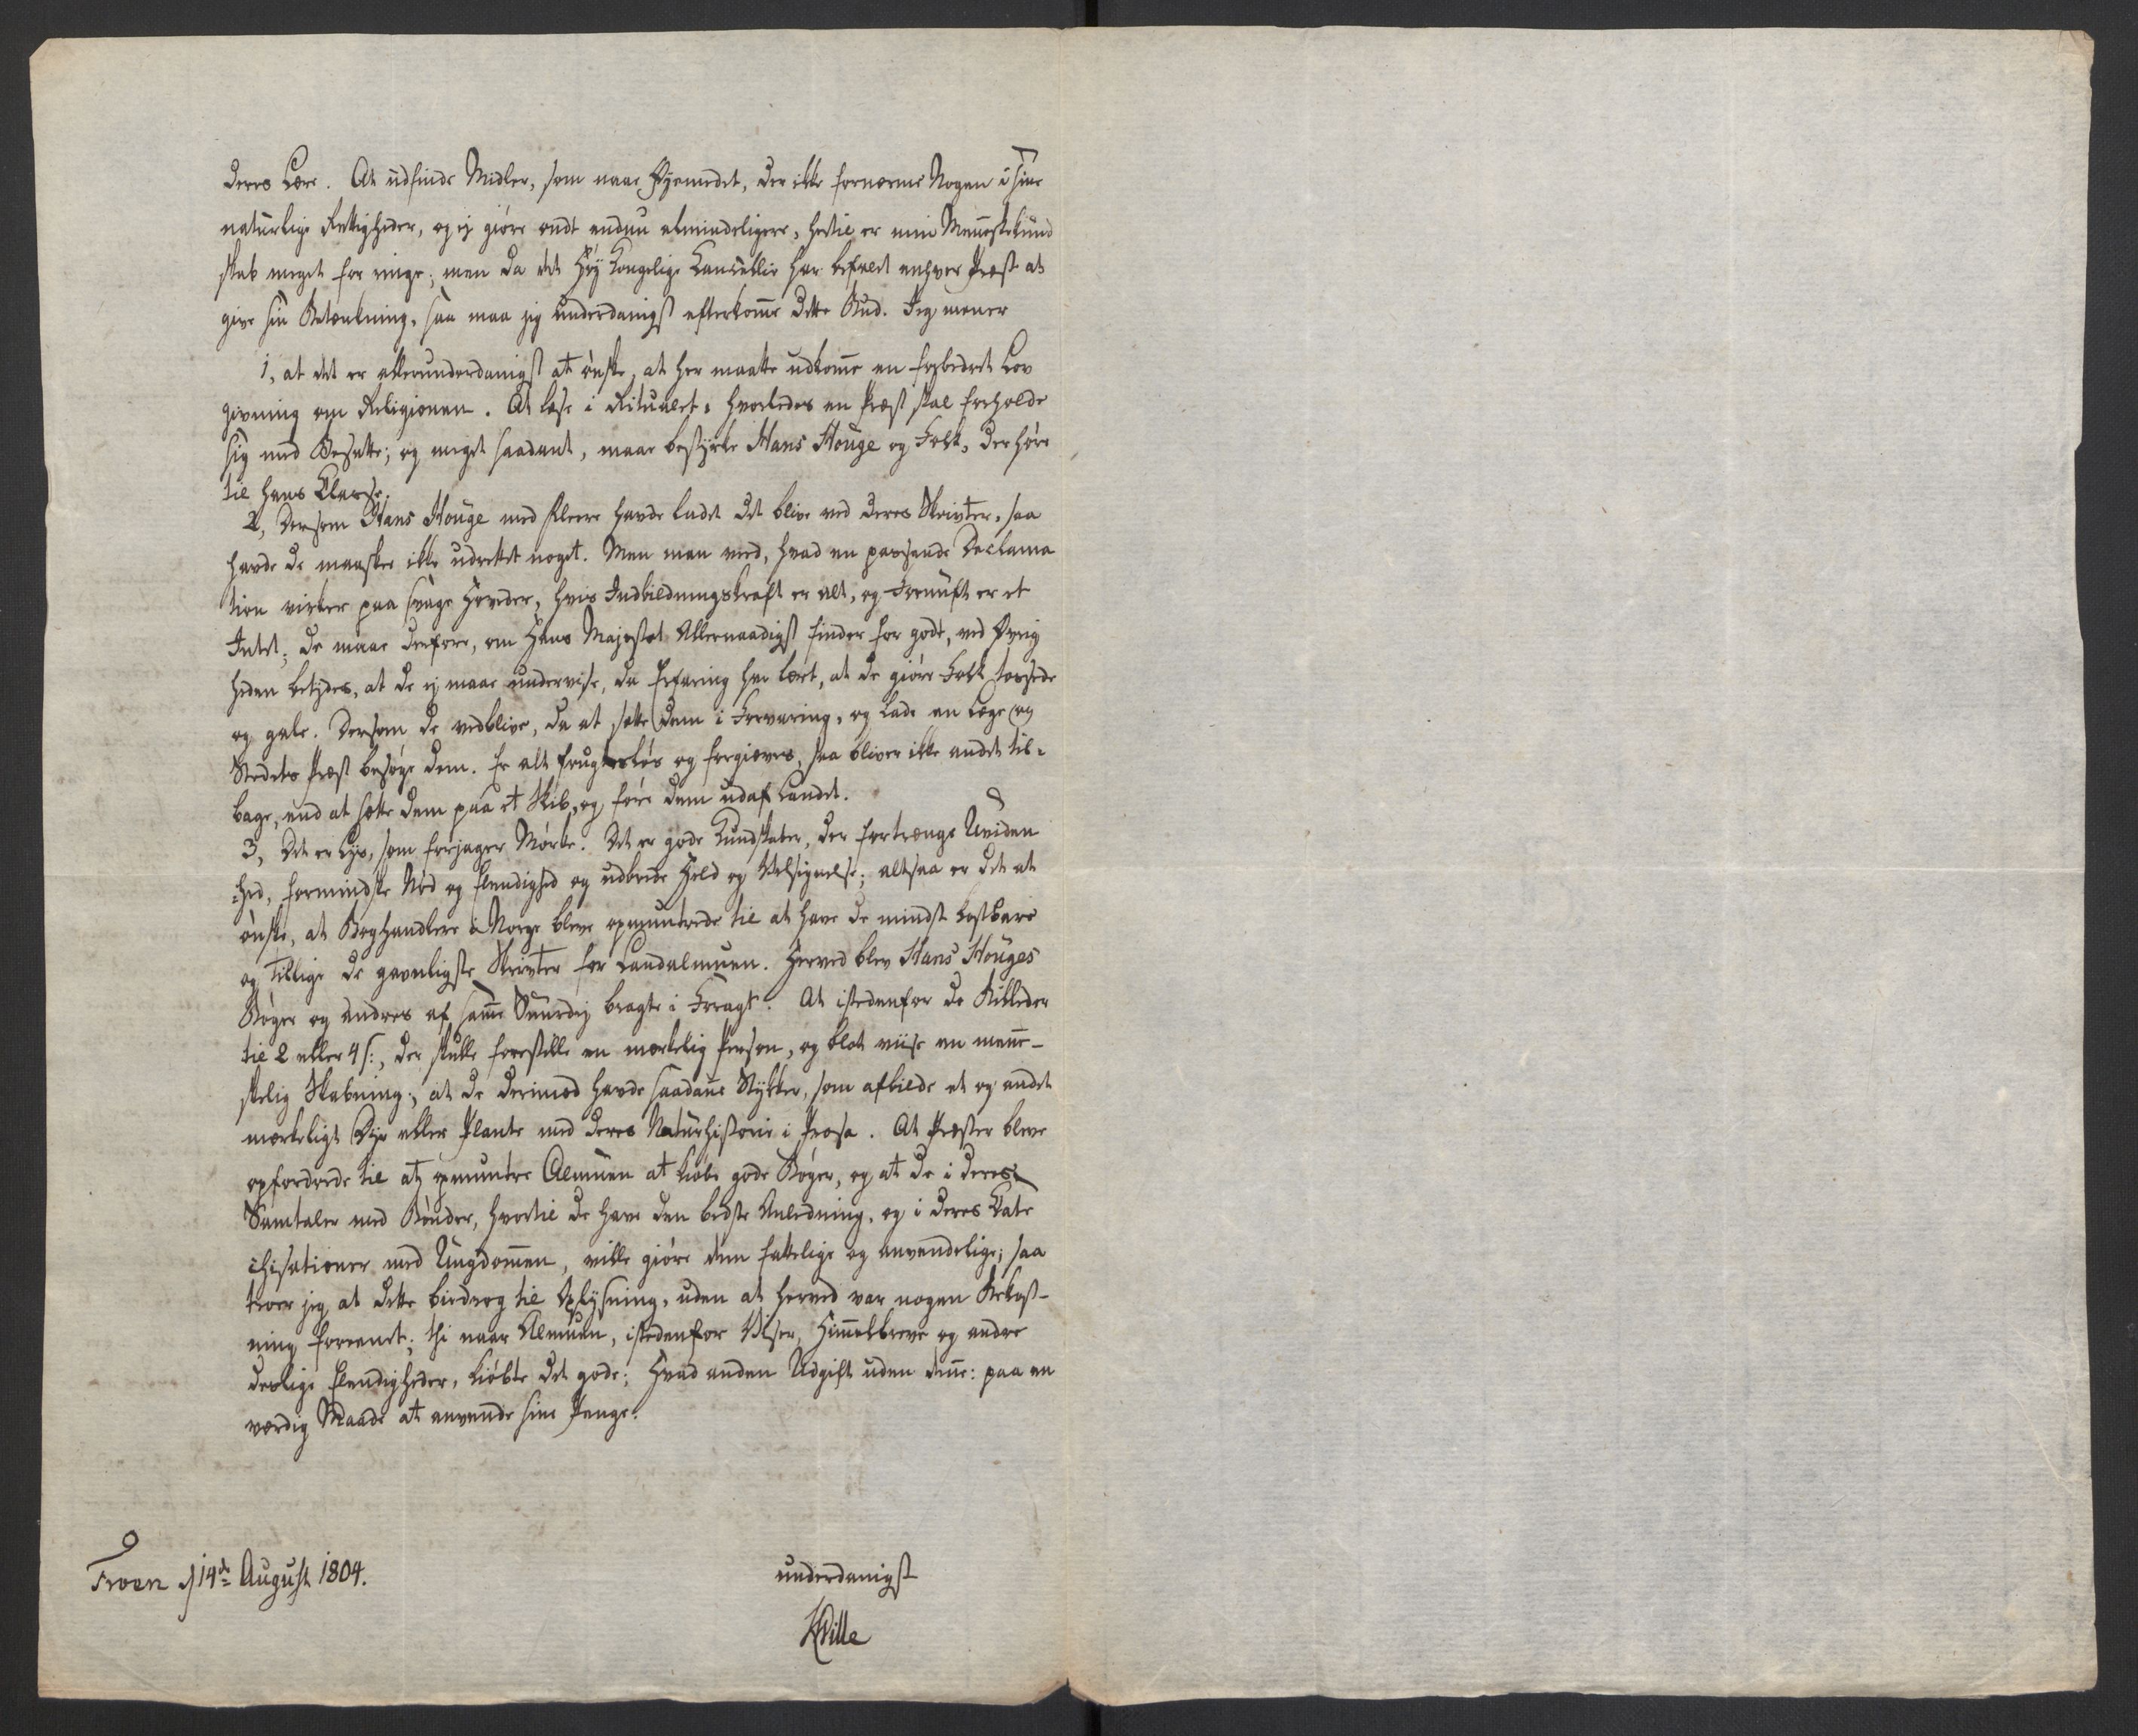 deres Lære. At udfinde Midler, som naae Øjemedet, der ikke fornærme Nogen i sine
naturlige Rettigheder, og ej giøre ondt endnu almindeligere, hertil er min Menneskekund
skab meget for ringe; men da det Høj Kongelige Cancellie har befalet enhver Præst at
give sin Betænkning, saa maa jeg underdanigst efterkomme dette Bud. Jeg mener
1, at det er allerunderdanigst at ønske, at her maatte udkomme en forbedret Lov
givning om Religionen. At læse i Ritualet, hvorledes en Præst skal forholde
sig med Besatte; og meget saadant, maae bestyrke Hans Houge og Folk, der høre
til hans Classe.
2, Dersom Hans Houge med Fleere havde ladet det blive ved deres Skrivter, saa
havde de maaskee ikke udrettet noget. Men man veed, hvad en passende Declama
tion virker paa svage Hoveder, hvis Indbildningskraft er alt, og Fornuft er et
Intet; de maae derfore, om Hans Majestæt Allernaadigst finder for godt, ved Øvrig
heden betydes, at de ej maae undervise, da Erfaring har lært, at de giøre Folk tossede
og gale. Dersom de vedblive, da at sætte dem i Forvaring, og lade en Læge og
Stedets Præst besøge dem. Er alt frugtesløs og forgiæves, saa bliver ikke andet til-
bage, end at sætte dem paa et Skib, og føre dem udaf Landet.
3, Det er Lys, som forjager Mørke. Det er gode Kundskaber, der fortrænge Uviden
hed, formindske Nød og Elendighed og udbrede Held og Velsignelse; altsaa er det at
ønske, at Boghandlere i Norge bleve opmuntrede til at have de mindst kostbare
og tillige de gavnligste Skrivter for Landalmuen. Herved blev Hans Houges
Bøger og andres af samme Suurdej bragte i Foragt. At istedenfor de Billeder
til 2 eller 4 s:, der skulle forestille en mærkelig Person, og blot viise en menne-
skelig Skabning, at de derimod havde saadanne Stykker, som afbilde et og andet
mærkeligt Dyr eller Plante med deres Naturhistorie i Prosa. At Præster bleve
opfordrede til at opmuntre Almuen at kiøbe gode Bøger, og at de i deres
Samtaler med Bønder, hvortil de have den bedste Anledning, og i deres Cate
chisationer med Ungdommen, ville giøre dem fattelige og anvendelige; saa
troer jeg at dette bidrog til Oplysning, uden at herved var nogen Bekost-
ning foreenet; thi naar Almuen, istedenfor Viser, Himmelbreve og andre
deslige Elendigheder, kiøbte det gode; hvad anden Udgift uden denne: paa en
værdig Maade at anvende sine Penge.
Froen d 14de August 1804.
underdanigst
HWille